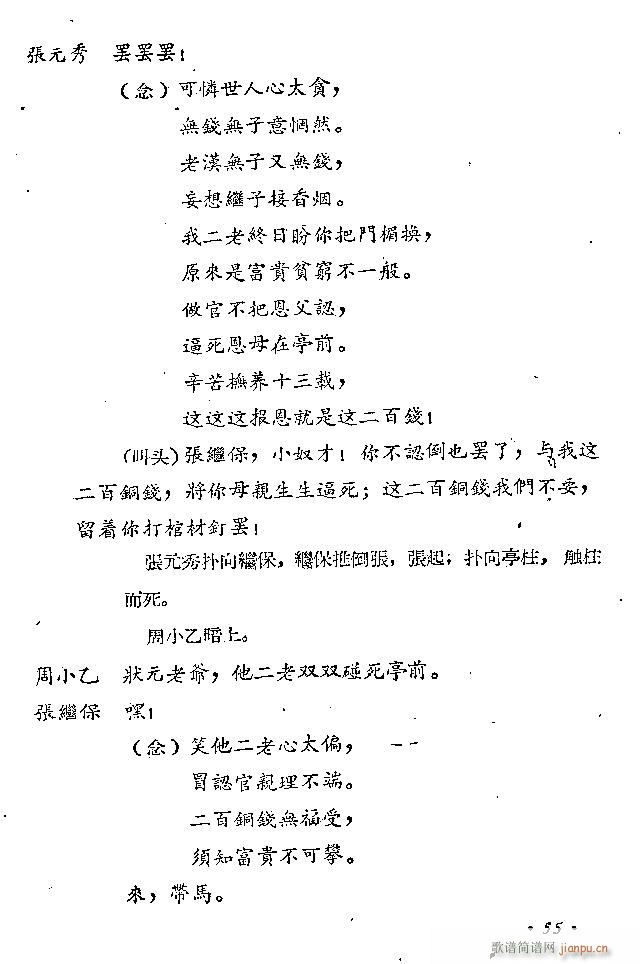 張元秀　罢罢罢！
（念）可憐世人心太貪，
無錢無子意惘然。
老漢無子又無錢，
妄想繼子接香烟。
我二老終日盼你把門楣换，
原來是富貴貧窮不一般。
做官不把恩父認，
逼死恩母在亭前。
辛苦撫养十三載，
这这这报恩就是这二百錢！
（叫头）張繼保，小奴才！你不認倒也罢了，与我这
二百銅錢，將你母親生生逼死；这二百銅錢我們不要，
留着你打棺材釘罢！
張元秀扑向繼保，繼保推倒張，張起；扑向亭柱，触柱
而死。
周小乙暗上。
周小乙　狀元老爺，他二老双双碰死亭前。
張繼保　嘿！
（念）笑他二老心太偏，
冒認官親理不端。
二百銅錢無福受，
須知富貴不可攀。
來，帶馬。
· 55 ·
歌谱简谱网
jianpu.cn